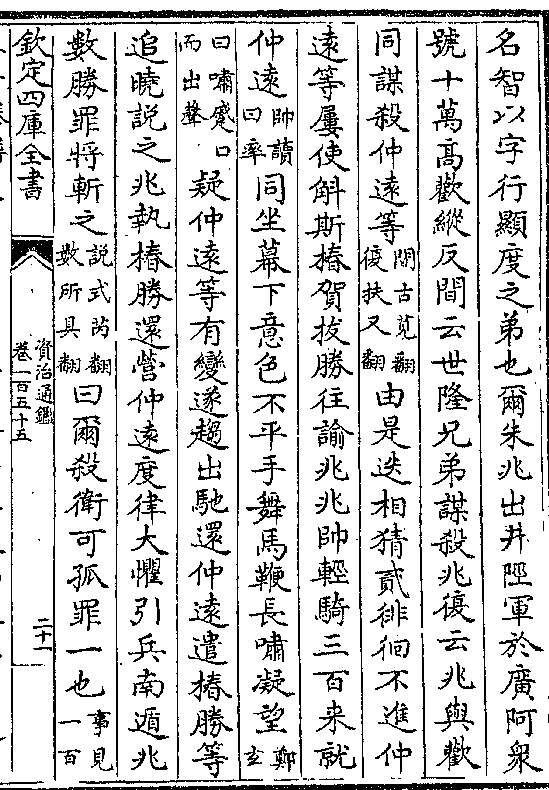 名智以字行顯度之弟也爾朱兆出井陘軍於廣阿衆
號十萬高歡縱反間云世隆兄弟謀殺兆復云兆與歡
同謀殺仲遠等間古莧翻復扶又翻由是迭相猜貳徘徊不進仲
遠等屢使斛斯椿賀拔勝往諭兆兆帥輕騎三百来就
仲遠帥讀曰率同坐幕下意色不平手舞馬鞭長嘯凝望鄭玄
曰嘯蹙口而出聲疑仲遠等有變遂趨出馳還仲遠遣椿勝等
追曉説之兆執椿勝還營仲遠度律大懼引兵南遁兆
數勝罪將斬之説式芮翻數所具翻曰爾殺衛可孤罪一也事見一百
欽定四庫全書
資治通鑑
卷一百五十五
二十一